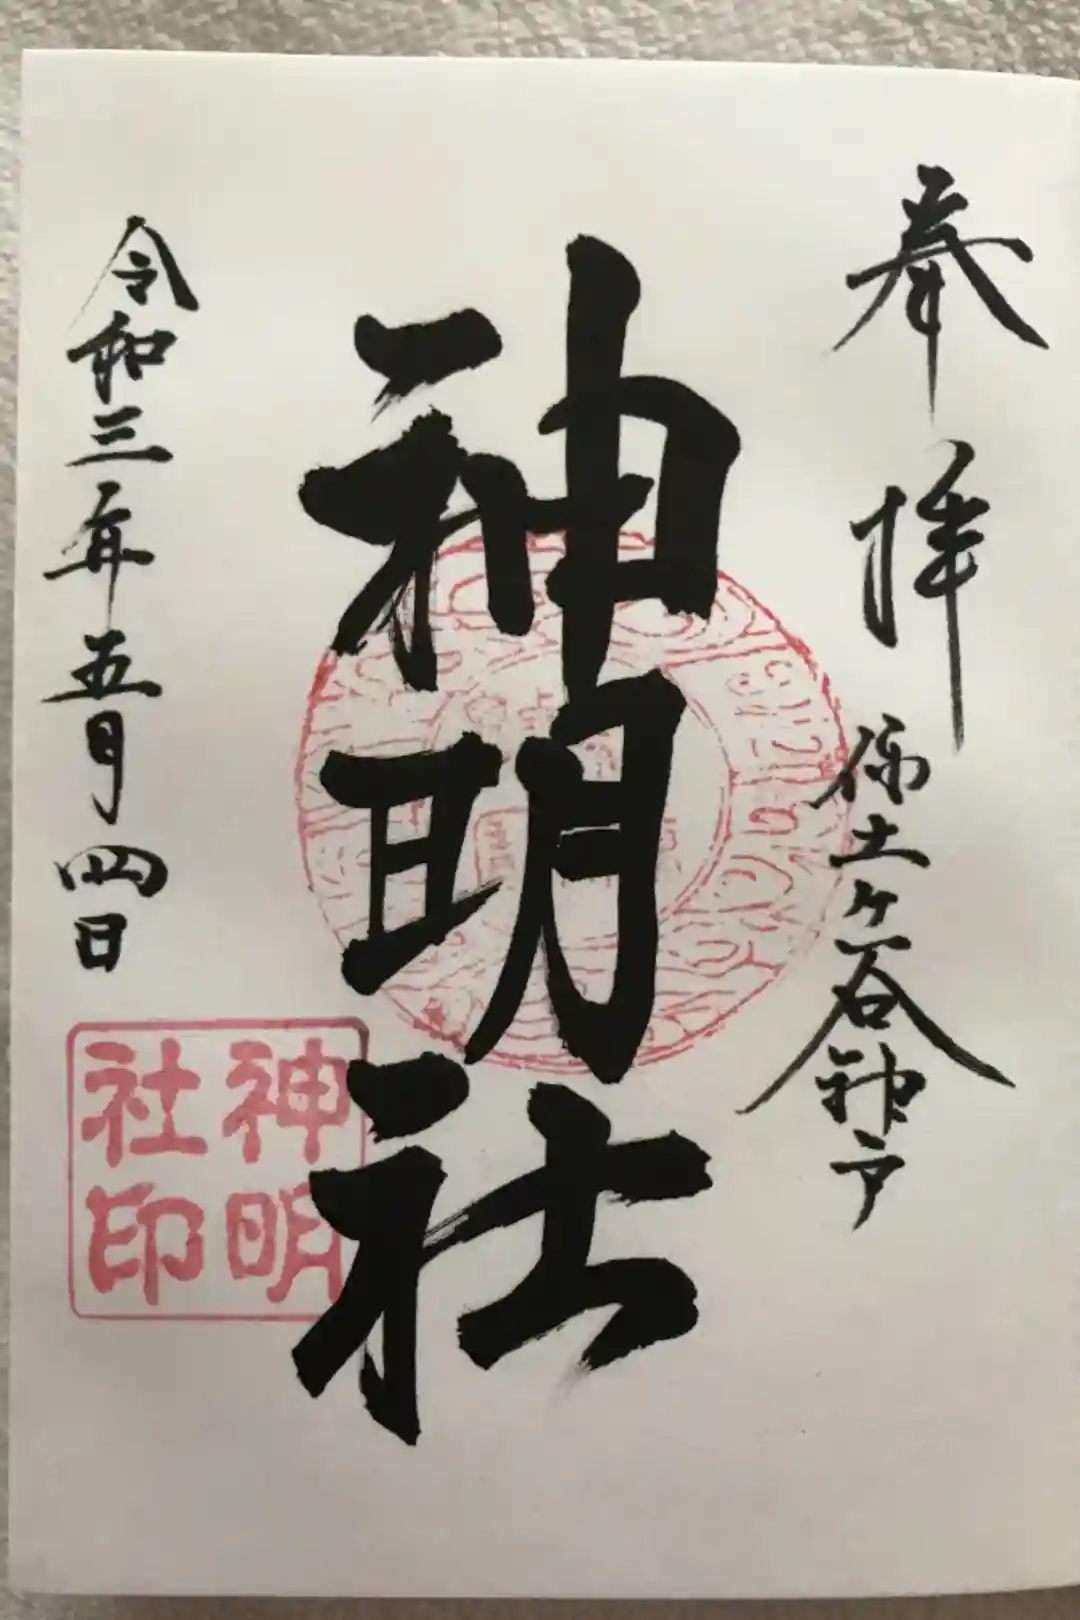 奉拝
保土ヶ谷神戸
神明社
令和三年五月四日
神明
社印